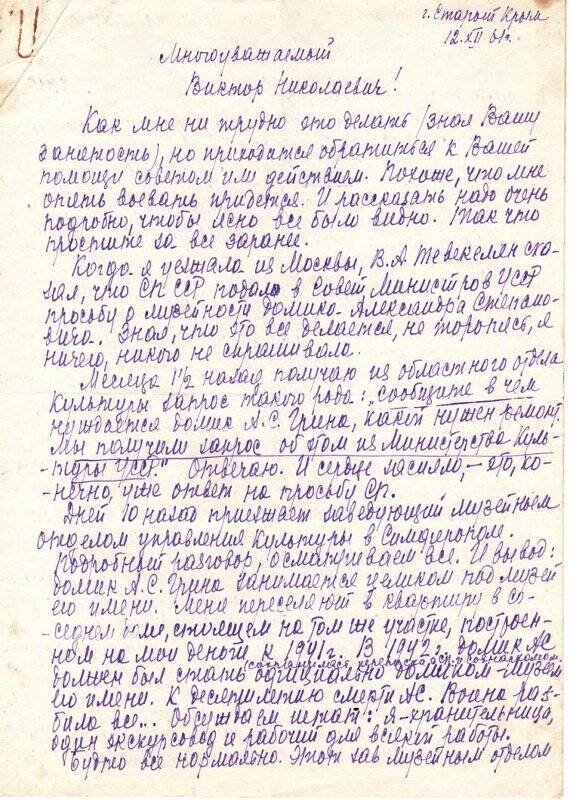 г. Старый Крым
12.XII 61г.
Многоуважаемый
Виктор Николаевич!
Как мне ни трудно это делать (зная Вашу
занятость), но приходится обратиться к Вашей
помощи советом или действием. Похоже, что мне
опять воевать придется. И рассказать надо очень
подробно, чтобы ясно все было видно. Так что
простите за все заранее.
Когда я уезжала из Москвы, В.А Тевекелян ска-
зал, что СП ССР подало в Совет Министров УССР
просьбу о музейности домика Александра Степано-
вича. Зная, что это все делается, не торопясь, я
ничего, никого не спрашивала.
Месяца 1½ назад получаю из областного отдела
культуры запрос такого рода: „сообщите в чем
нуждается домик А.С. Грина, какой нужен ремонт.
Мы получили запрос об этом из Министерства Куль-
-туры УССР." Отвечаю. И сердце засияло, – это, ко-
-нечно, уже ответ на просьбу СП.
Дней 10 назад приезжает заведующий музейным
отделом управления культуры в Симферополе.
Подробный разговор, осматриваем все. И вывод:
домик А.С. Грина занимается целиком под музей
его имени. Меня переселяют в квартиру в со-
-седнем доме, стоящем на том же участке, построен-
ном на мои деньги к 1941г. В 1942г. домик АС
(сохранилась переписка с СП и совнаркомом)
должен был стать официально домиком-музеем
его имени. К десятилетию смерти АС. Война раз-
била все... Обсуждаем штат: я-хранительница,
один экскурсовод и рабочий для всякой работы.
Будто все нормально. Этот зав музейным отделом